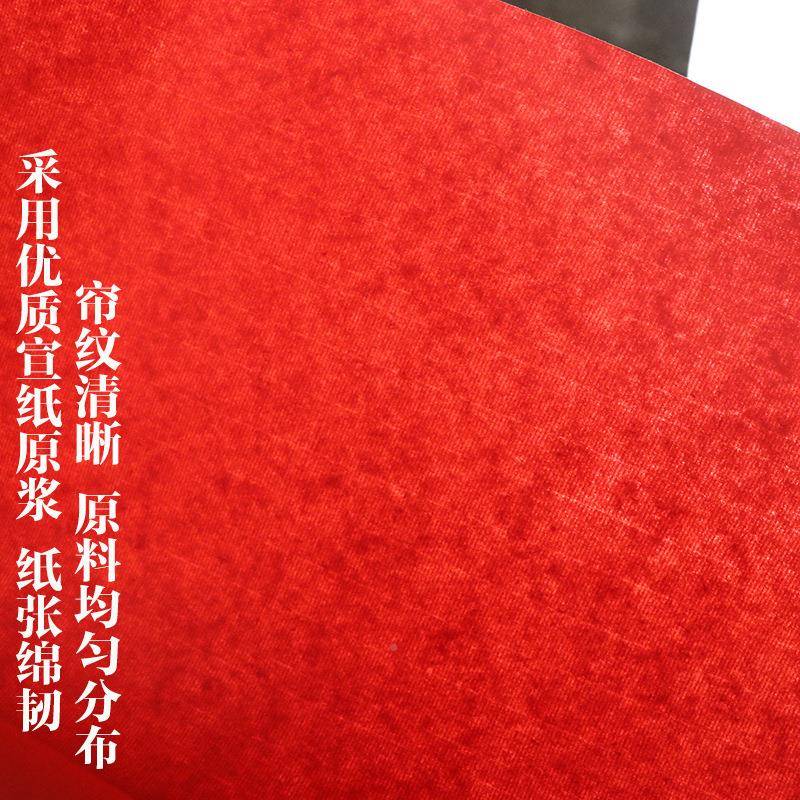 采用优质宣纸原浆 纸张绵韧
帘纹清晰 原料均匀分布